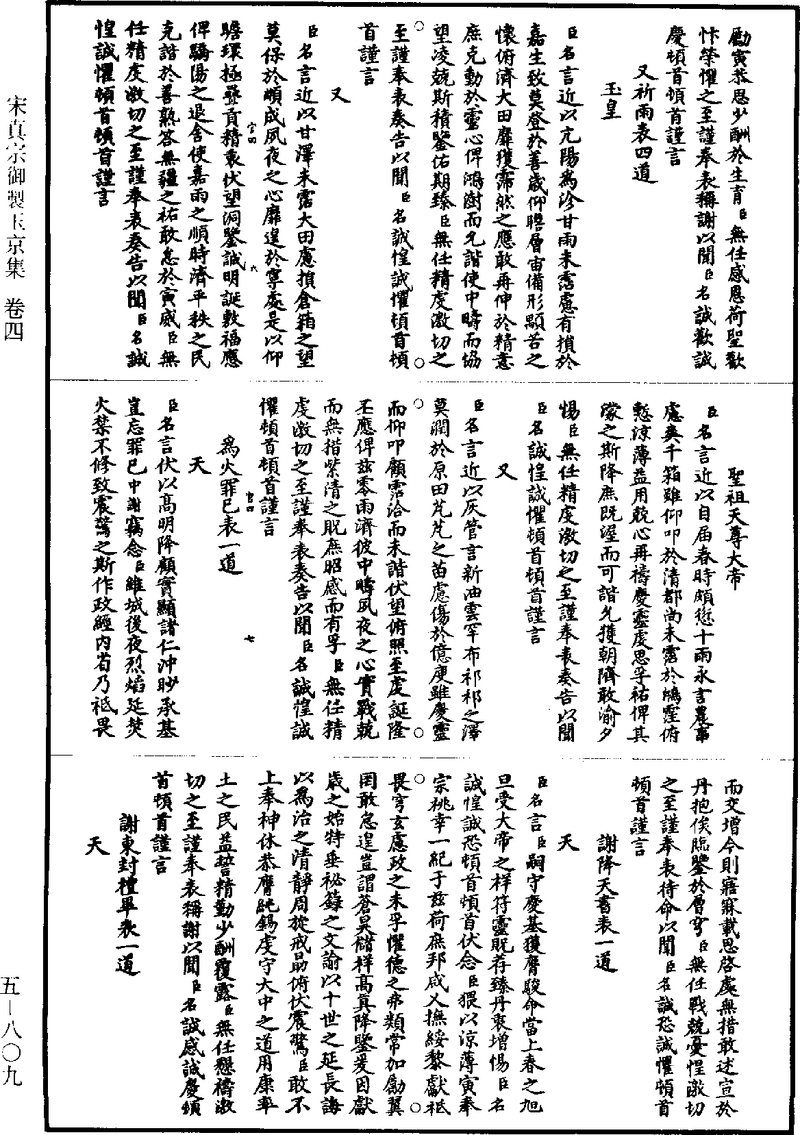 勵寅恭思少酬於生育臣無任感恩荷聖歡
忭榮懼之至謹奉表稱謝以聞臣名誠歡誠
慶頓首頓首謹言
又祈雨表四道
玉皇
臣名言近以亢陽為沴甘雨未霑慮有損於
嘉生致莫登於善歲仰瞻層宙備形顯苦之
懷俯濟大田靡獲霈然之應敢再伸於精意
庶克動於靈心俾鴻澍而允諧使中疇而協
望凌兢斯積鑒佑期臻臣無任精虔激切之
至謹奉表奏告以聞臣名誠惶誠懼頓首頓
首謹言
又
臣名言近以甘澤未霑大田慮損倉箱之望
莫保於順成夙夜之心靡遑於寧處是以仰
瞻環極疊貢精衷伏望洞鑒誠明誕敷福應
俾驕陽之退舍使嘉雨之順時濟平秩之民
克諧於善熟答無疆之祐敢怠於寅威臣無
任精虔激切之至謹奉表奏告以聞臣名誠
惶誠懼頓首頓首謹言
聖祖天尊大帝
臣名言近以自屆春時頗愆十雨永言農事
慮爽千箱雖仰叩於清都尚未霑於鴻霔俯
慙涼薄益用兢心再禱慶靈虔思孚祐俾其
濛之斯降庶既渥而可諧允獲朝隮敢渝夕
惕臣無任精虔激切之至謹奉表奏告以聞
臣名誠惶誠懼頓首頓首謹言
又
臣名言近以灰管言新油雲罕布祁祁之澤
莫潤於原田芃芃之苗慮傷於億庾雖慶靈
而仰叩顧霑洽而未諧伏望俯照至虔誕隆
丕應俾茲零雨濟彼中疇夙夜之心實戰兢
而無措紫清之貺庶昭感而有孚臣無任精
虔激切之至謹奉表奏告以聞臣名誠惶誠
懼頓首頓首謹言
為火罪己表一道
天
臣名言伏以高明降顧實顯諸仁沖眇承基
豈忘罪己中謝竊念臣維城後夜烈焰延焚
火禁不修致震驚之斯作政經內省乃祗畏
而交增今則寤寐載思啓處無措敢述宣於
丹抱俟臨鑒於層穹臣無任戰兢憂惶激切
之至謹奉表待命以聞臣名誠恐誠懼頓首
頓首謹言
謝降天書表一道
天
臣名言臣嗣守慶基獲膺駿命當上春之旭
旦受大帝之祥符靈貺荐臻丹衷增惕臣名
誠惶誠恐頓首頓首伏念臣猥以涼薄寅奉
宗祧幸一紀于茲荷庶邦咸乂撫綏黎獻祗
畏穹玄慮政之未孚懼德之弗類常加勵翼
罔敢怠遑豈謂蒼昊儲祥高真降鑒爰因獻
歲之始特垂祕籙之文諭以十世之延長誨
以為治之清靜周旋戒勗俯伏震驚臣敢不
上奉神休恭膺純錫虔守大中之道用康率
土之民益誓精勤少酬覆露臣無任懇禱激
切之至謹奉表稱謝以聞臣名誠感誠慶頓
首頓首謹言
謝東封禮畢表一道
天
宋真宗御製玉京集 卷四
五—八〇九
宫四
六
宫四
七